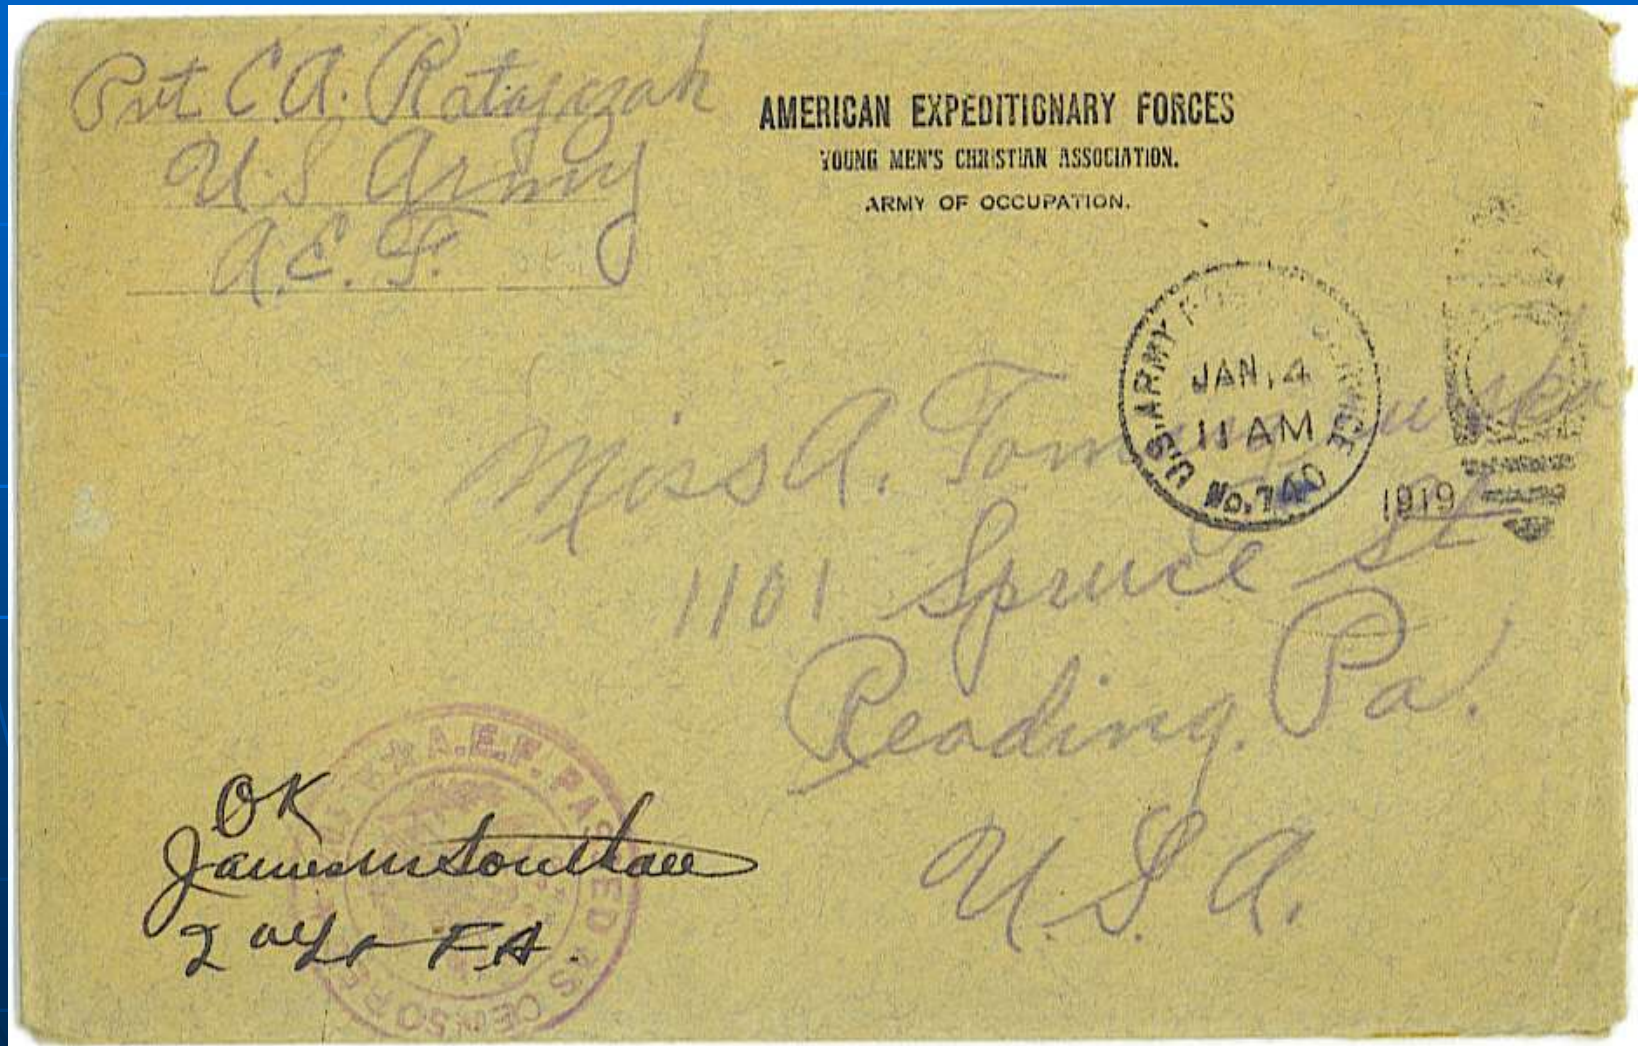 Pvt C A. Ratajazak
U.S Army
A.E.F.
AMERICAN EXPEDITIONARY FORCES
YOUNG MEN'S CHRISTIAN ASSOCIATION.
ARMY OF OCCUPATION.
U.S. ARMY SERVICE
JAN. 4
11 AM
No. 740
1919
Miss A.
1101 Spruce St
Reading. Pa.
U.S.A.
A.E.F. PASSED AS CENSORED
OK
James M Southall
F.A.